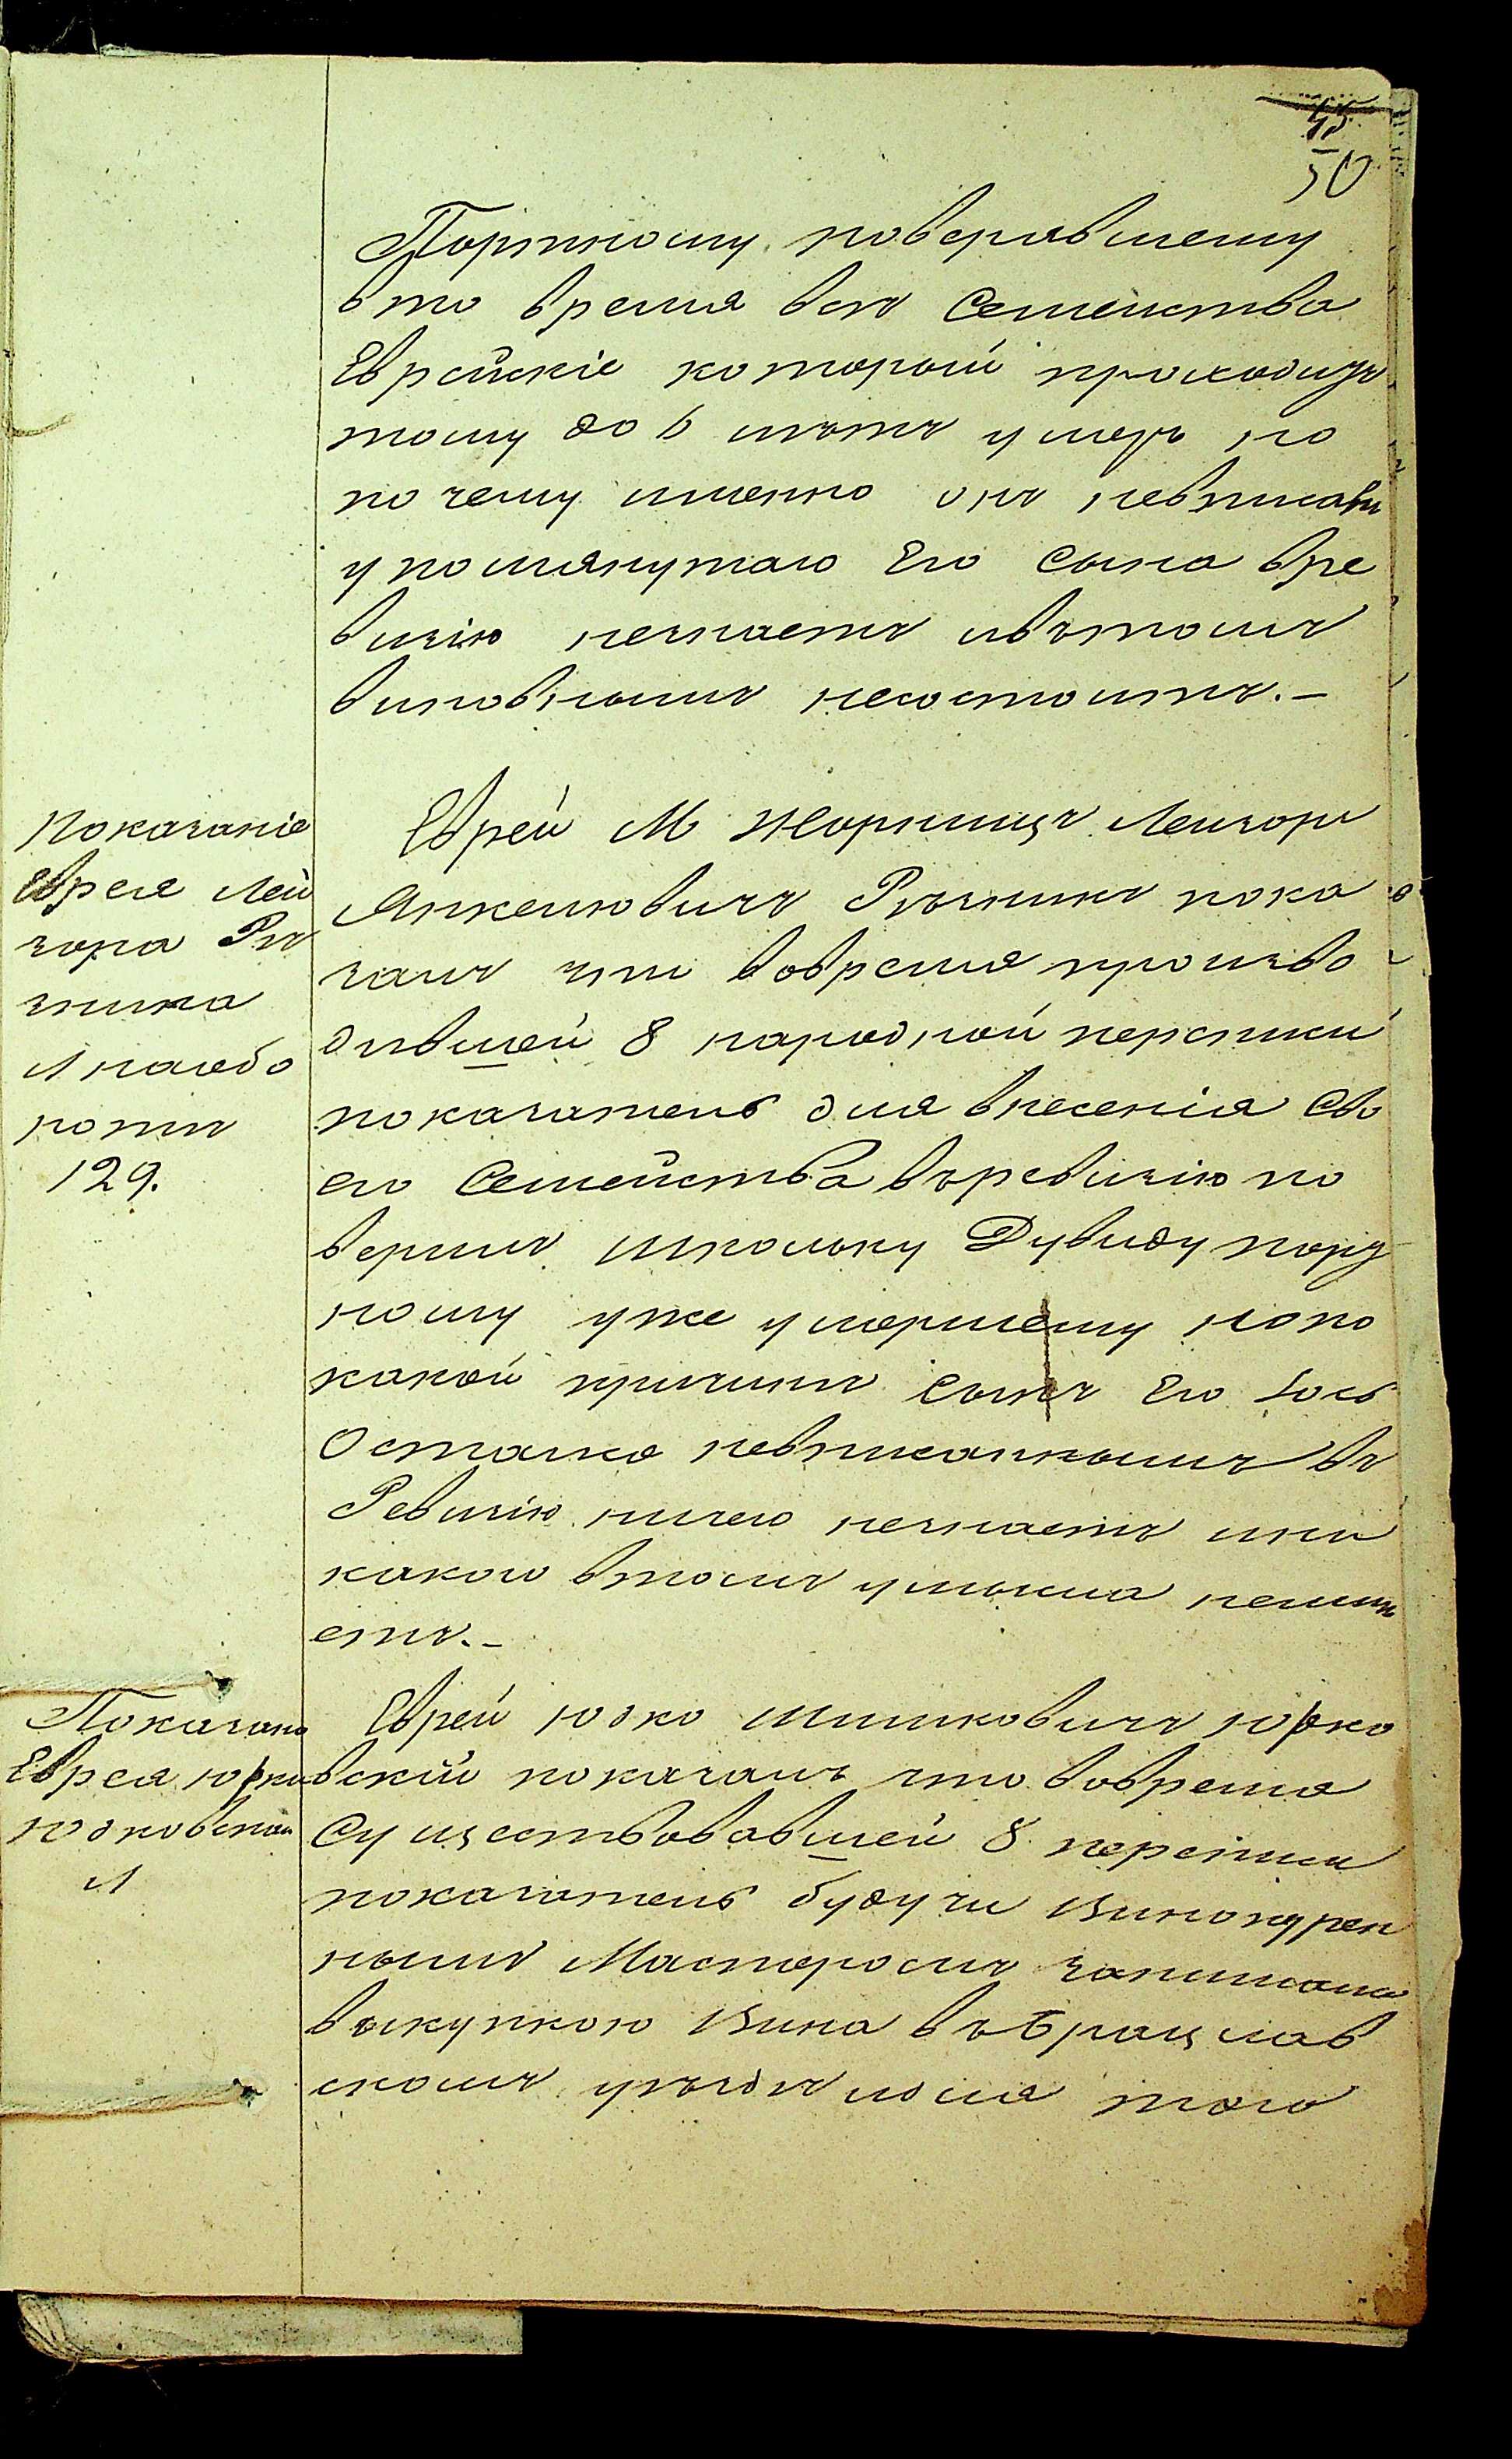 45
50
Портному поверявшему
вто время всѣ Семейства
Еврейскіе который происходу
тому до 6 лѣтъ умеръ но
по чему именно онъ невписалъ
упомянутаго Его сына вре
визію незнаетъ ивътомъ
виновнымъ несостоитъ.-
Показаніе
Еврея Лей
зора Рѣ
зника
Л наобо
ротѣ
129.
Еврей М Жорнищъ Лейзоръ
Янкелювичъ Рѣзникъ пока
залъ что вовремя произво
дившей 8 народной переписи
показатель для внесенія Сво
его Семейства върсвизію по
верилъ школьку Дувиду порт
ному уже умершему нопо
какой причинѣ сынъ Его Іось
Остался невписаннымъ въ
Ревизію ничего незнаетъ ини
какого втомъ умысла неимѣ
етъ.-
Показаніе
Еврея юдки
юдковскаго
Л
Еврей юдко Шлиiмковичъ юдко
вскій показалъ что вовремя
Существовавшей 8 переписи
показатель будучи Винокурен
нымъ Мастеромъ занимался
выкупкою Вина въБрацлав
скомъ уѣздѣ поля того